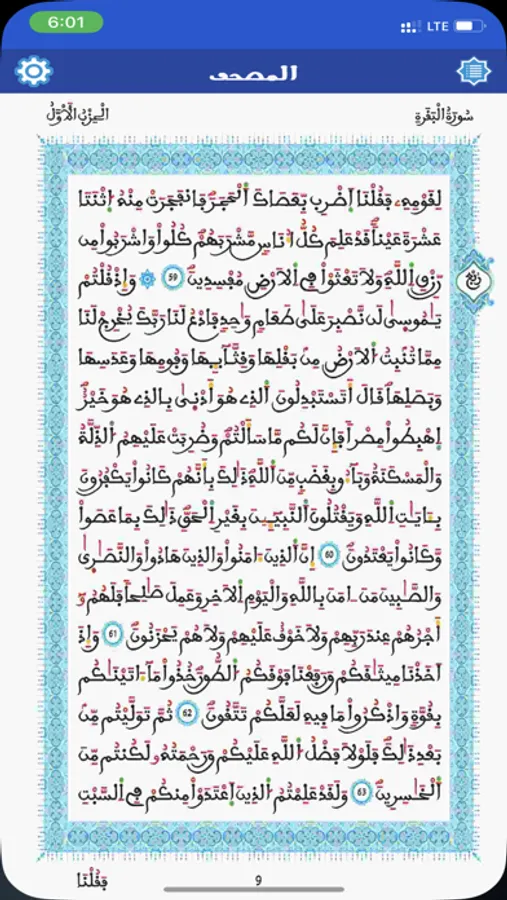 6:01
LTE
المصحف
سُورَةُ الْبَقَرَةِ
الْحِزْبُ الْأَوَّلُ
لِقَوْمِهِۦ فَقُلْنَا اَضْرِب بِّعَصَاكَ اَلْحَجَرَ فَانفَجَرَتْ مِنْهُ اُثْنَتَا
عَشْرَةَ عَيْناٗ قَدْ عَلِمَ كُلُّ أُنَاسٖ مَّشْرَبَهُمْ كُلُواْ وَاشْرَبُواْ مِن
رِّزْقِ اِللَّهِ وَلَا تَعْثَوْاْ فِے اِلَارْضِ مُفْسِدِينَ 59 وَإِذْ قُلْتُمْ
يَٰمُوسَىٰ لَن نَّصْبِرَ عَلَىٰ طَعَامٖ وَٰحِدٖ فَادْعُ لَنَا رَبَّكَ يُخْرِجْ لَنَا
مِمَّا تُنۢبِتُ اُلَارْضُ مِنۢ بَقْلِهَا وَقِثَّآئِهَا وَفُومِهَا وَعَدَسِهَا
وَبَصَلِهَا قَالَ أَتَسْتَبْدِلُونَ اَلذِے هُوَ أَدْنَىٰ بِالذِے هُوَ خَيْرٌ
اِهْبِطُواْ مِصْراٗ فَإِنَّ لَكُم مَّا سَأَلْتُمْ وَضُرِبَتْ عَلَيْهِمُ اُلذِّلَّةُ
وَالْمَسْكَنَةُ وَبَآءُو بِغَضَبٖ مِّنَ اَللَّهِ ذَٰلِكَ بِأَنَّهُمْ كَانُواْ يَكْفُرُونَ
بِـَٔايَٰتِ اِللَّهِ وَيَقْتُلُونَ اَلنَّبِيٓـِٕينَ بِغَيْرِ اِلْحَقِّ ذَٰلِكَ بِمَا عَصَواْ
وَّكَانُواْ يَعْتَدُونَ 60 إِنَّ اَلذِينَ ءَامَنُواْ وَالذِينَ هَادُواْ وَالنَّصَٰرَىٰ
وَالصَّٰبِينَ مَنَ اٰمَنَ بِاللَّهِ وَالْيَوْمِ اِلَاخِرِ وَعَمِلَ صَٰلِحاٗ فَلَهُمُۥٓ
أَجْرُهُمْ عِندَ رَبِّهِمْ وَلَا خَوْفٌ عَلَيْهِمْ وَلَا هُمْ يَحْزَنُونَ 61 وَإِذَ
اَخَذْنَا مِيثَٰقَكُمْ وَرَفَعْنَا فَوْقَكُمُ اُلطُّورَ خُذُواْ مَآ ءَاتَيْنَٰكُم
بِقُوَّةٖ وَاذْكُرُواْ مَا فِيهِ لَعَلَّكُمْ تَتَّقُونَ 62 ثُمَّ تَوَلَّيْتُم مِّنۢ
بَعْدِ ذَٰلِكَ فَلَوْلَا فَضْلُ اُللَّهِ عَلَيْكُمْ وَرَحْمَتُهُۥ لَكُنتُم مِّنَ
اَلْخَٰسِرِينَ 63 وَلَقَدْ عَلِمْتُمُ اُلذِينَ اَعْتَدَوْاْ مِنكُمْ فِے اِلسَّبْتِ
فَقُلْنَا
9